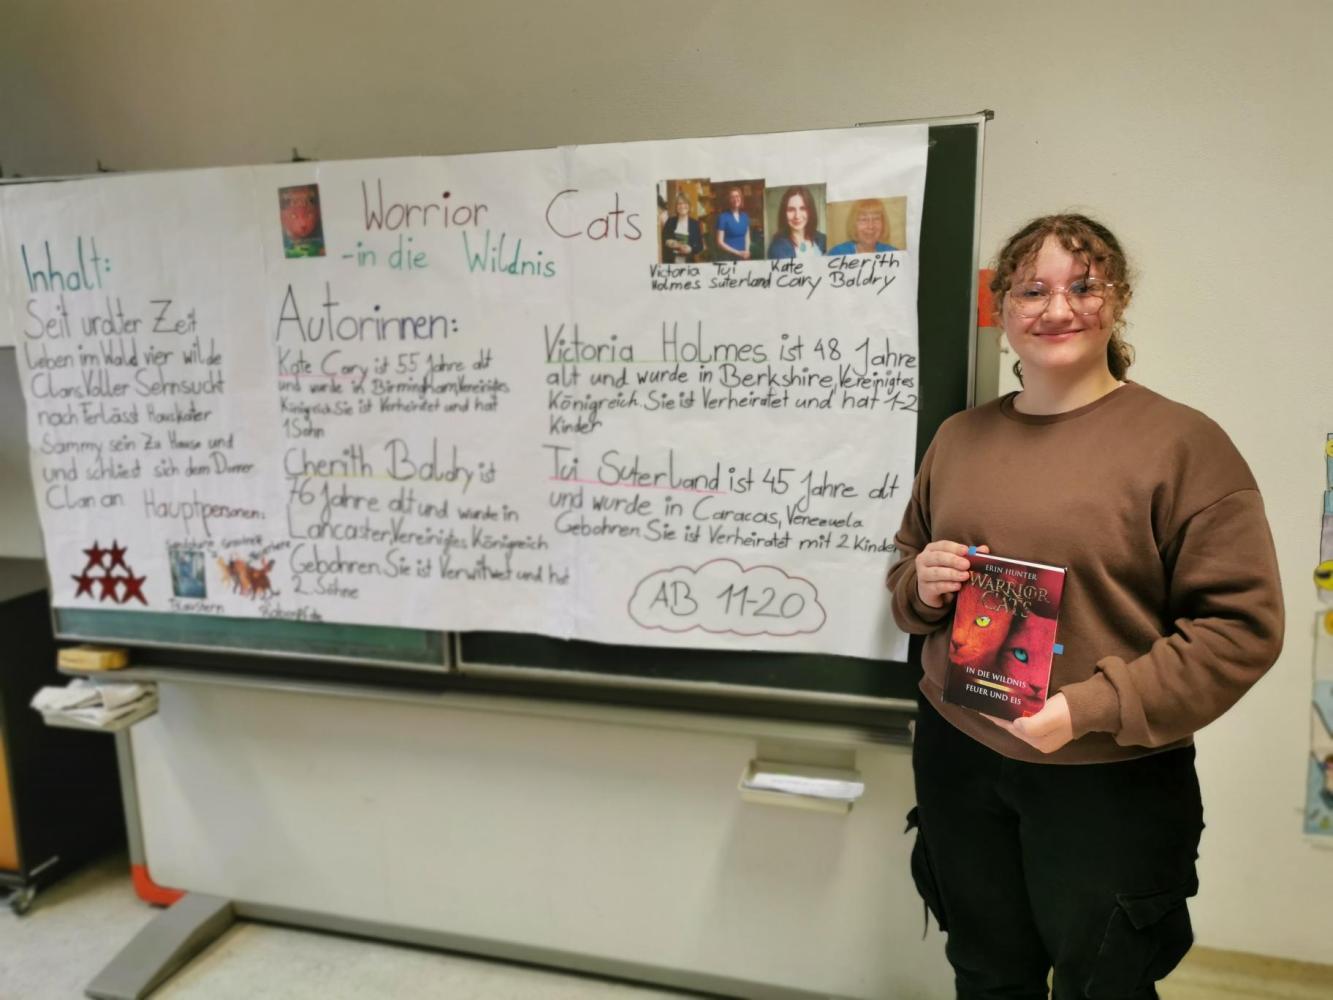 Worrior Cats
-in die Wildnis
Victoria Holmes
Tui Suterland
Kate Cary
Cherith Baldry
Inhalt:
Seit uralter Zeit
Leben im Wald vier wilde
Clans Voller Sehnsucht
nach Verlässt Hauskater
Sammy sein Zu Hause und
und schliest sich dem Donner
Clan an
Hauptpersonen:
Autorinnen:
Kate Cary ist 55 Jahre alt
und wurde in Birmingham, Vereinigtes
Königreich. Sie ist Verheiratet und hat
1 Sohn
Cherith Baldry ist
76 Jahre alt und wurde in
Lancaster, Vereinigtes Königreich
Gebohren. Sie ist Verwitwet und hat
2 Söhne
Victoria Holmes ist 48 Jahre
alt und wurde in Berkshire, Vereinigtes
Königreich. Sie ist Verheiratet und hat 1-2
Kinder
Tui Suterland ist 45 Jahre alt
und wurde in Caracas, Venezuela
Gebohren. Sie ist Verheiratet mit 2 Kinder
AB 11-20
ERIN HUNTER
WARRIOR
CATS
IN DIE WILDNIS
FEUER UND EIS